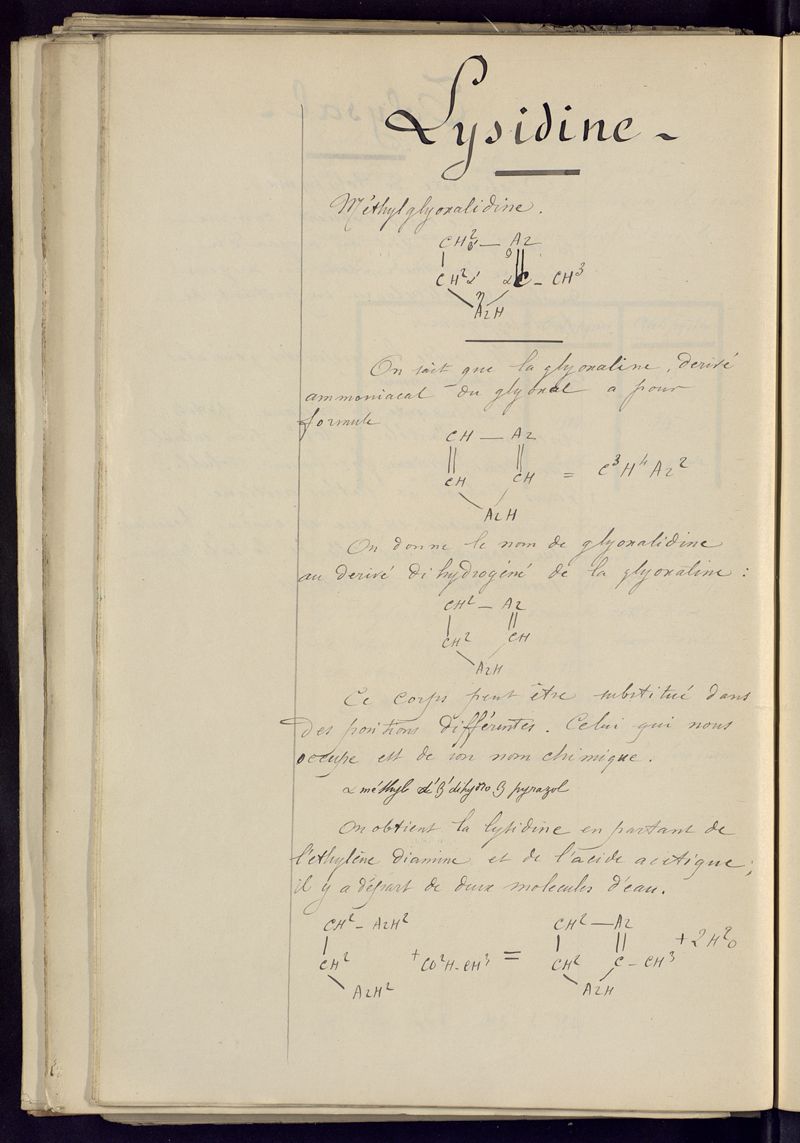 Lysidine -
Méthylglyoxalidine.
CH² — Az
CH² α' α C - CH³
AzH
On sait que la glyoxaline, derivé
ammoniacal du glyoxal a pour
formule
CH — Az
CH CH = C³H⁴Az²
AzH
On donne le nom de glyoxalidine
au derivé di hydrogéné de la glyoxaline :
CH² — Az
CH² CH
AzH
Ce corps peut être substitué dans
des positions différentes. Celui qui nous
occupe est de son nom chimique.
α méthyl α' β' dihydro β pyrazol
On obtient la lysidine en partant de
l'ethylène diamine et de l'acide acétique ;
il y a départ de deux molecules d'eau.
CH² - AzH² CH² — Az
CH² + CO²H - CH³ = CH² C - CH³ + 2H²O
AzH² AzH